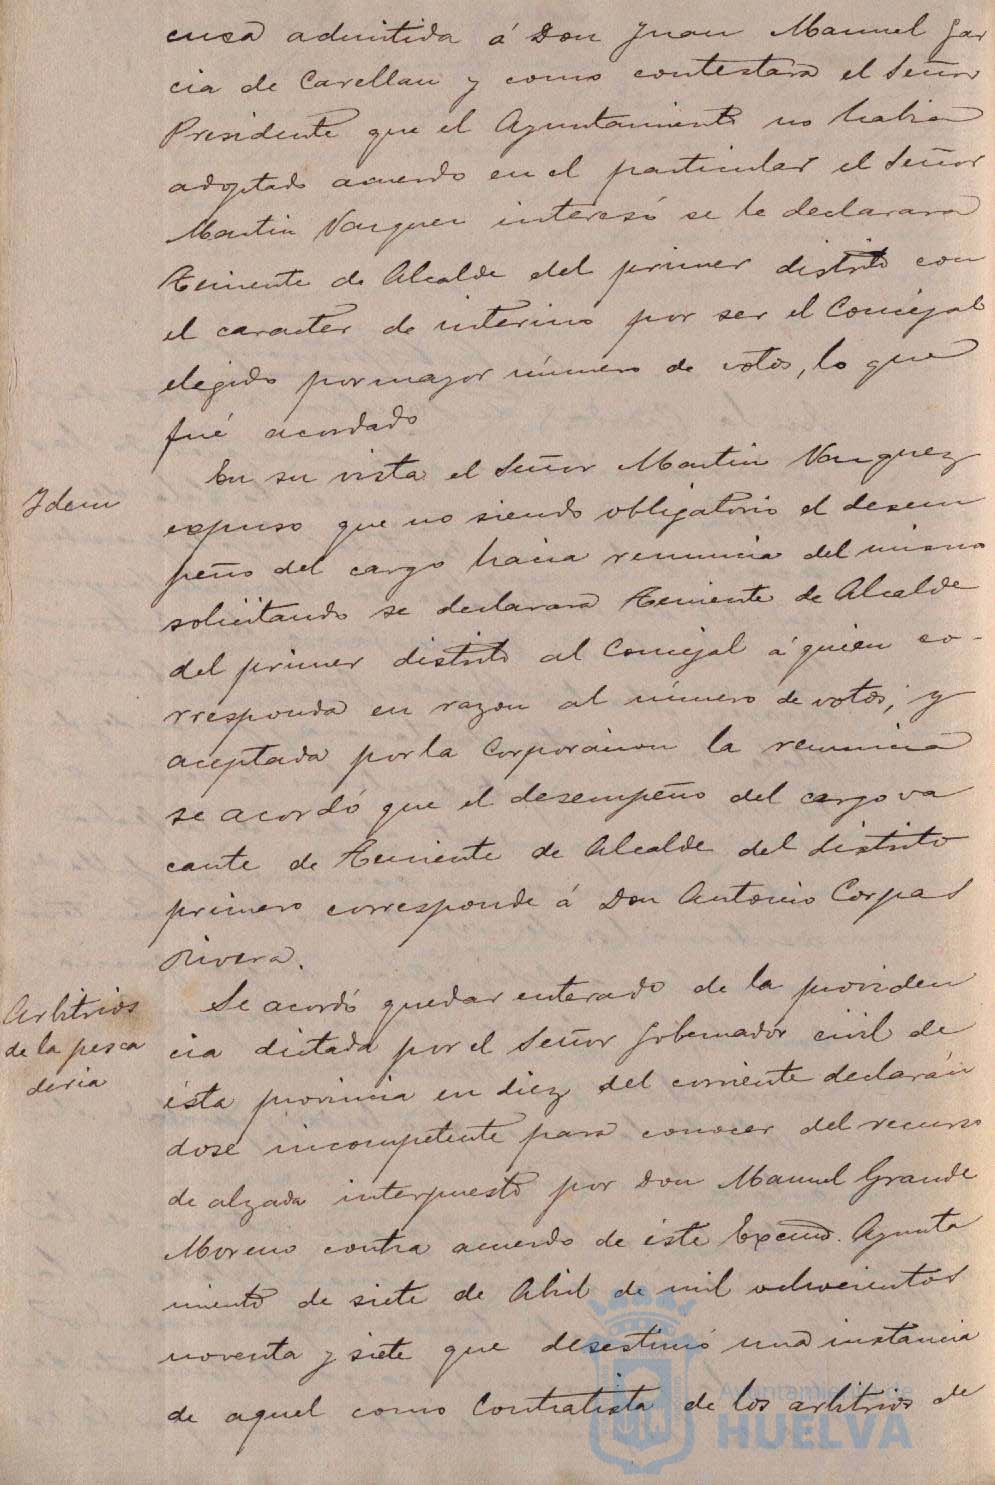 cusa admitida á Don Juan Manuel Gar
cia de Carellan y como contestara el Señor
Presidente que el Ayuntamiento no habia
adoptado acuerdo en el particular el Señor
Martin Vazquez interesó se le declarara
Teniente de Alcalde del primer distrito con
el caracter de interino por ser el Concejal
elegido por mayor número de votos, lo que
fué acordado
Idem
En su vista el Señor Martin Vazquez
expuso que no siendo obligatorio el desem
peño del cargo hacia renuncia del mismo
solicitando se declarara Teniente de Alcalde
del primer distrito al Concejal á quien co-
rresponda en razon al número de votos; y
aceptada por la Corporacion la renuncia
se acordó que el desempeño del cargo va
cante de Teniente de Alcalde del distrito
primero corresponde á Don Antonio Corpas
Rivera.
Arbitrios
de la pesca
deria
Se acordó quedar enterado de la providen
cia dictada por el Señor Gobernador civil de
ésta provincia en diez del corriente declarán
dose incompetente para conocer del recurso
de alzada interpuesto por Don Manuel Grande
Moreno contra acuerdo de éste Excmo. Ayunta
miento de siete de Abril de mil ochocientos
noventa y siete que desestimó una instancia
de aquel como Contratista de los arbitrios de
Ayuntamiento de
HUELVA